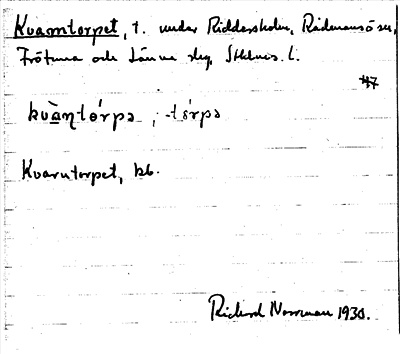 Kvarntorpet, t. under Riddersholm, Rådmansö sn,
Frötuna och Länna slg, Sthlms l.
kvà̱ṇtórpə, -tórpə
Kvarntorpet, kb.
Rickard Norrman 1930.